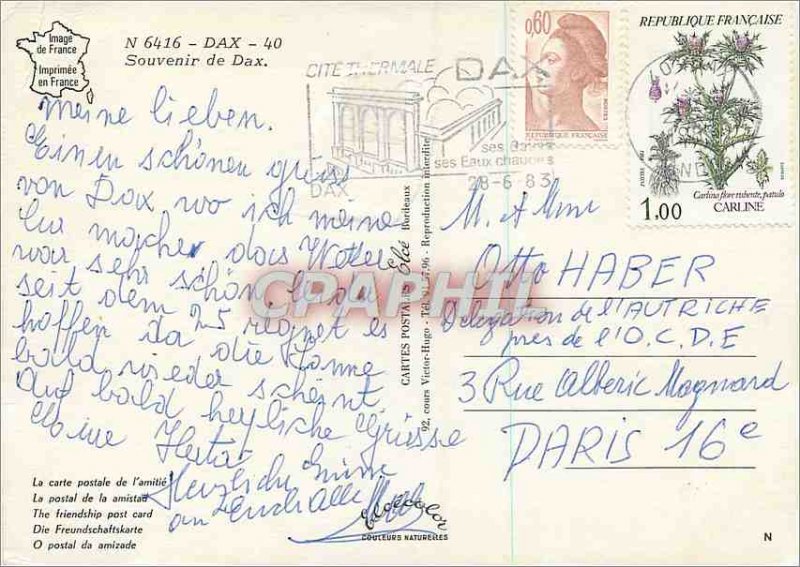 Image
de France
Imprimée
en France
N 6416 - DAX - 40
Souvenir de Dax.
CITE THERMALE DAX
ses Eaux chaudes
28-6 83
DAX
0,60
REPUBLIQUE FRANÇAISE
REPUBLIQUE FRANÇAISE
Carlina flore rubente, patulo
1,00 CARLINE
meine lieben.
Einen schönen grüss
von Dax wo ich meine
Cur mache das Wetter
war sehr schön, leider
seit dem 25 regnet es
hoffen da die Sonne
bald wieder scheint.
Auf bald herzliche Grüsse
Eure
Herzliche
an Euch alle
M. & Mme
Otto HABER
Délégation de l'AUTRICHE
près de l'O.C.D.E
3 Rue Alberic Magnard
PARIS 16e
CARTES POSTALES Elcé Bordeaux
92, cours Victor-Hugo - Tél. 91-57.96 - Reproduction interdite
CPAPHIL
La carte postale de l'amitié
La postal de la amistad
The friendship post card
Die Freundschaftskarte
O postal da amizade
elcécolor
COULEURS NATURELLES
N